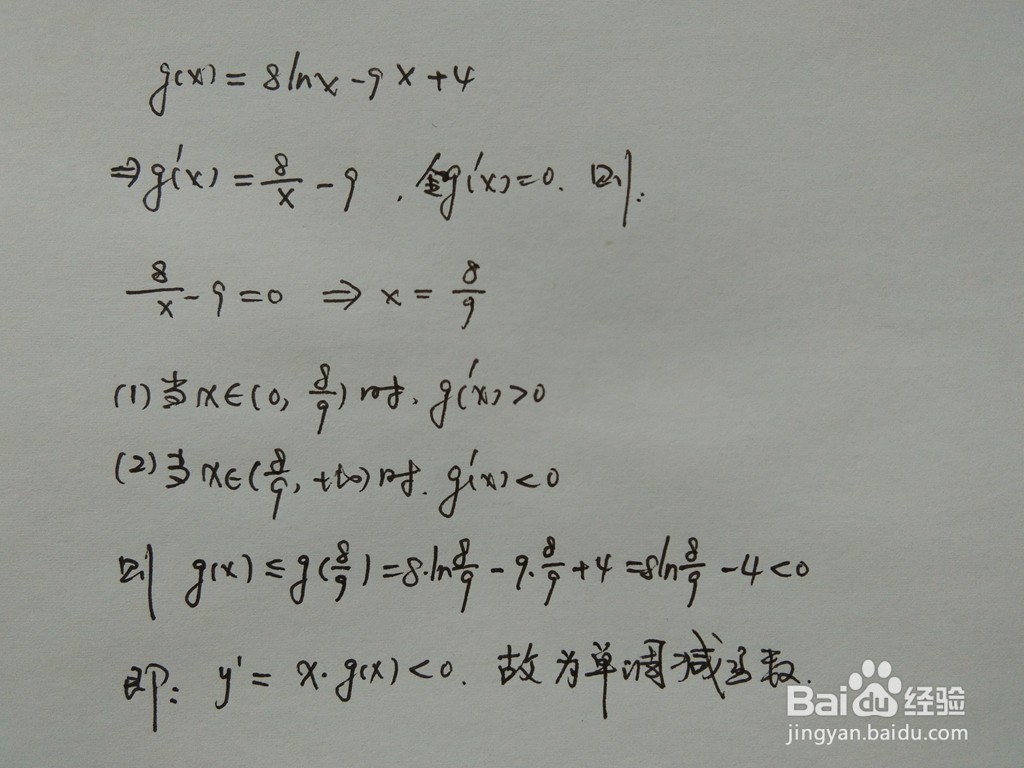 g(x) = 8lnx - 9x + 4
⇒ g'(x) = 8/x - 9 , 令g'(x)=0. 则:
8/x - 9 = 0 ⇒ x = 8/9
(1) 当x∈(0, 8/9)时, g'(x)>0
(2) 当x∈(8/9, +∞)时, g'(x)<0
则 g(x) ≤ g(8/9) = 8·ln8/9 - 9·8/9 + 4 = 8ln8/9 - 4 < 0
即: y' = x·g(x) < 0. 故为单调减函数.
Baidu经验
jingyan.baidu.com